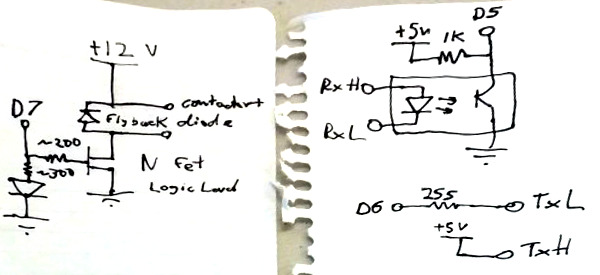 +12 V
contactor
Flyback diode
D7
~200
~300
N Fet
Logic Level
D5
+5v
1K
RxH
RxL
D6
255
TxL
+5V
TxH